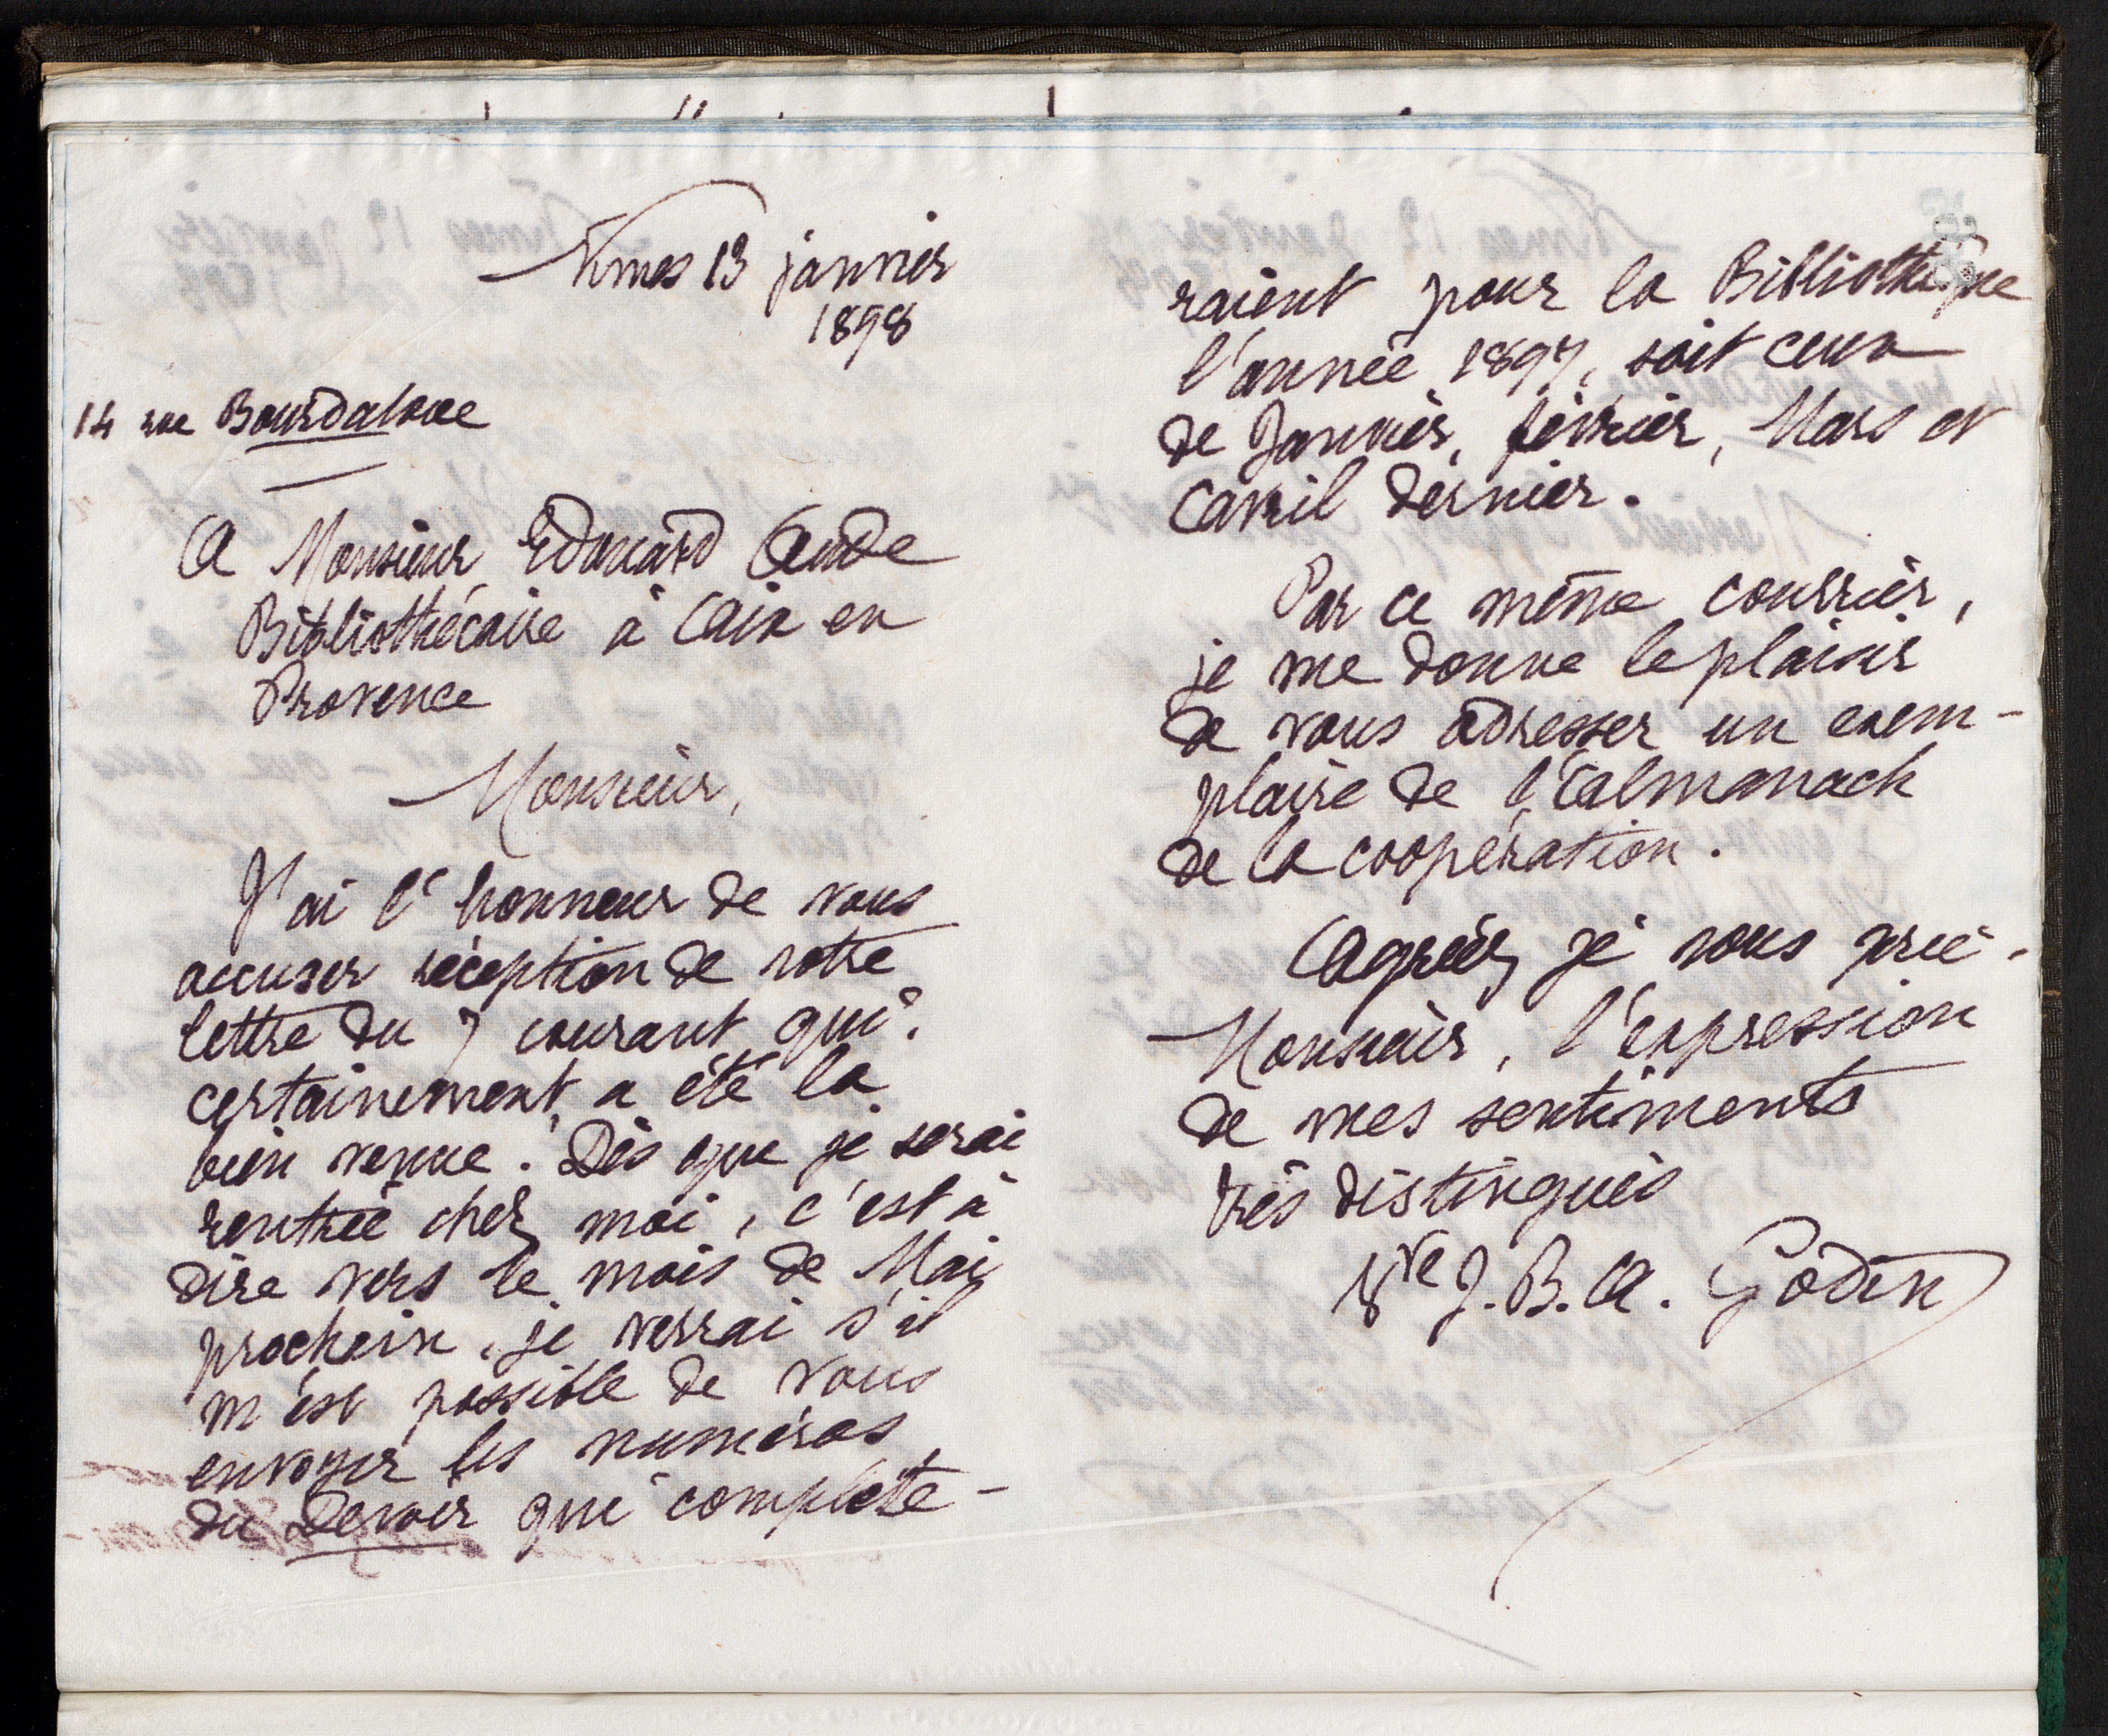 Nîmes 13 janvier
1898
14 rue Bourdaloue
A Monsieur Edouard Aude
Bibliothécaire à Aix en
Provence
Monsieur,
J'ai l'honneur de vous
accuser réception de votre
lettre du 7 courant qui
certainement a été la
bien venue. Dès que je serai
rentrée chez moi, c'est à
dire vers le mois de Mai
prochain, je verrai s'il
m'est possible de vous
envoyer les numéros
du Devoir qui complète-
raient pour la Bibliothèque
l'année 1897, soit ceux
de Janvier, février, Mars et
Avril dernier.
Par ce même courrier,
je me donne le plaisir
de vous adresser un exem-
plaire de l'Almanach
de la coopération.
Agréez, je vous prie,
Monsieur, l'expression
de mes sentiments
très distingués
Vve J. B. A. Godin